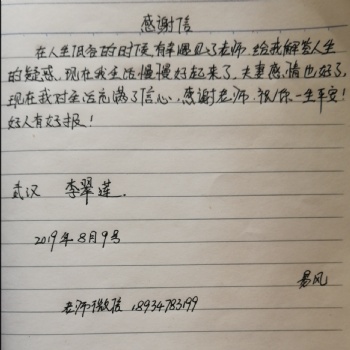 感谢信
在人生低谷的时候,有幸遇见了老师,给我解答人生
的疑惑,现在我生活慢慢好起来了,夫妻感情也好了,
现在我对生活充满了信心,感谢老师,祝你一生平安!
好人有好报!
武汉 李翠莲.
2019年8月9号
易风
老师微信 18934783199